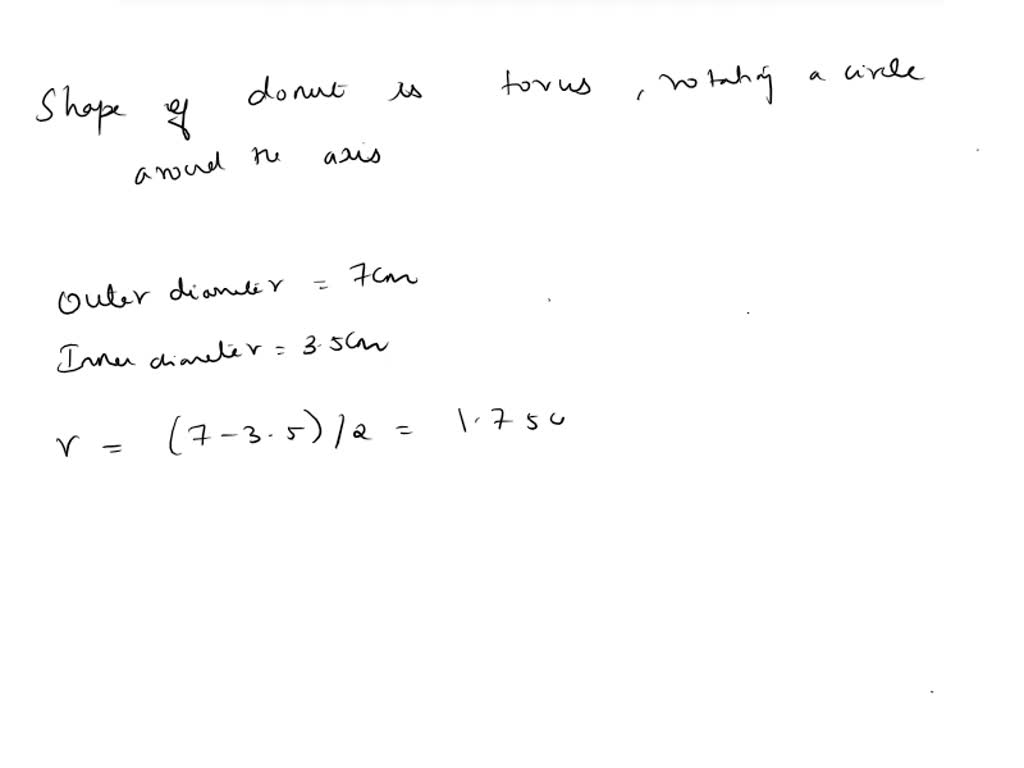 Shape of donut is torus, rotating a circle
around the axis
Outer diameter = 7cm
Inner diameter = 3.5cm
r = (7-3.5)/2 = 1.75c